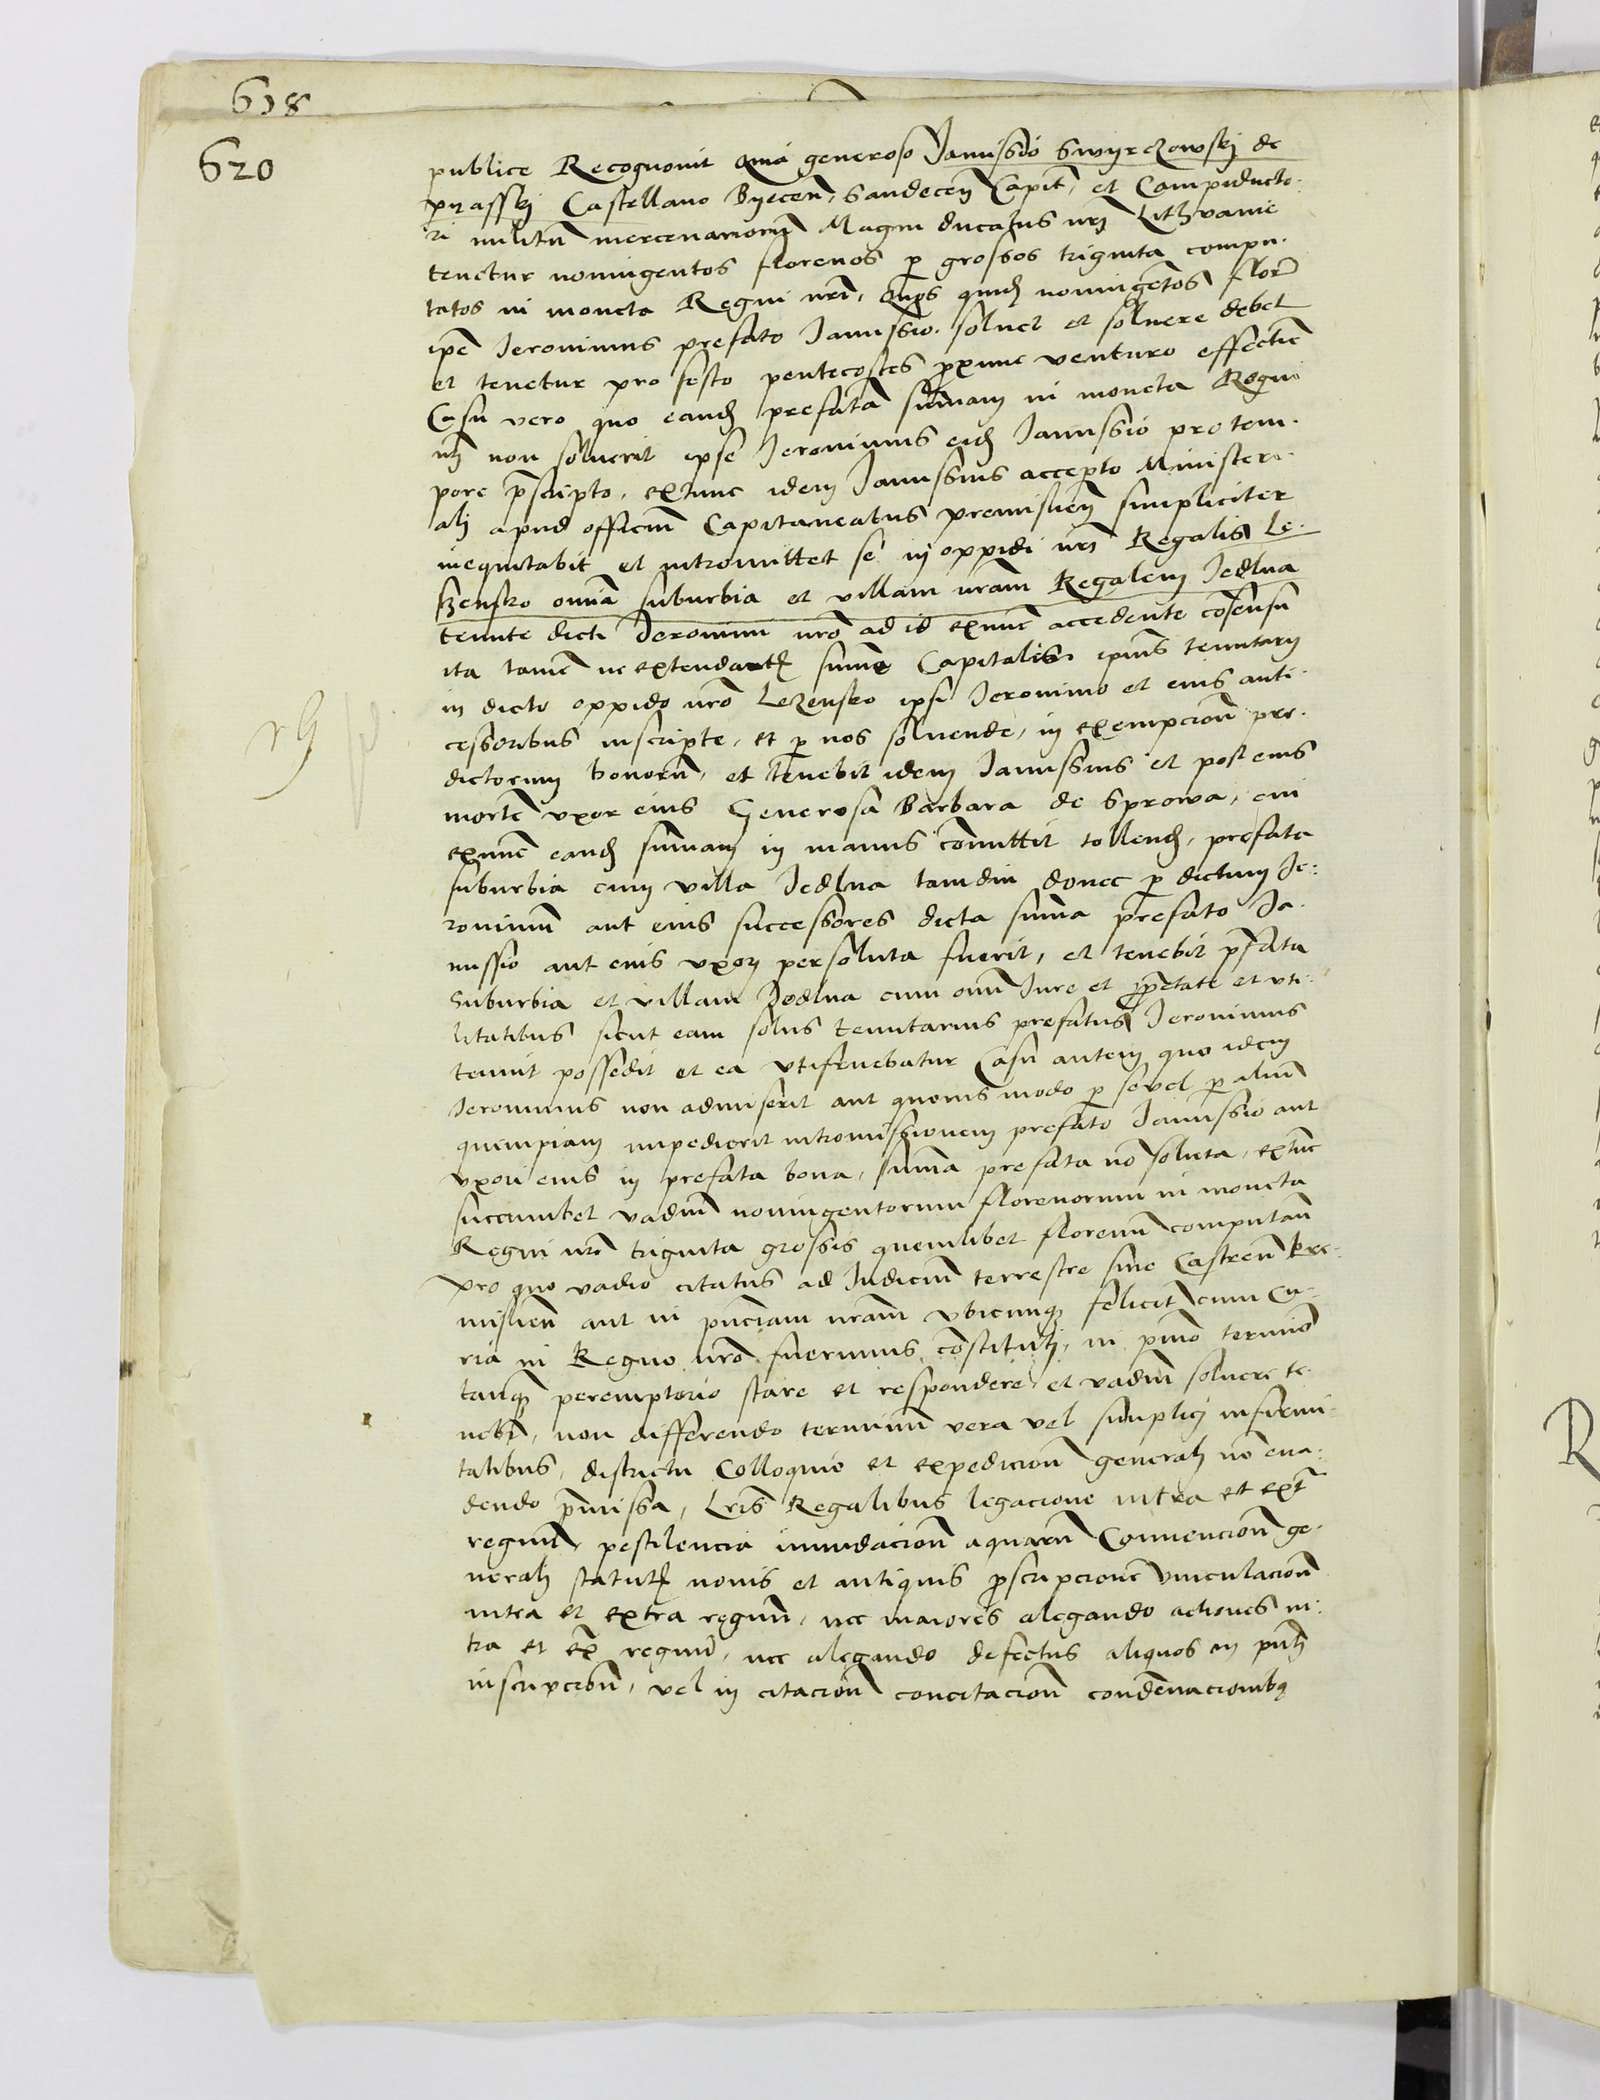 618
620
publice Recognovit qma generoso Janussio Swyrczowskj de
pyasskj Castellano Byecen, Sandecen Capit, et Campiducto-
ri militu mercenariorum Magni ducatus nrj Lithvanie
tenetur nomingentos florenos p grossos triginta compu-
tatos in moneta Regni nri, quos quid nomingetos flor
ipe Jeronimus prefato Janussio solvet et solvere debet
et tenetur pro festo pentecostes pxime venturo effectie
Casu vero quo eand prefata sumam in moneta Regni
nrj non solverit ipse Jeronimus eid Janussio pro tem-
pore pscripto, extunc idem Janussius accepto Ministeri-
alj apud officiu Capitaneatus premislien simpliciter
inequitabit et intromittet se in oppidi nri Regalis Le-
szensko omia suburbia et villam nram Regalem Jedlna
tenute dicti Jeronimi nro ad id exnunc accedente cosensu
ita tame ne extendantur sume Capitalis ipius tenutarij
in dicto oppido nro Lezensko ipsi Jeronimo et eius anti-
cessoribus inscripte, et p nos solvende, in exempcion pre-
dictorum bonoru, et tenebit idem Janussius et post eius
morte uxor eius Generosa Barbara de Sprowa, cui
exnunc eand sumam in manus comittit tollend, prefata
suburbia cum villa Jedlna tamdiu donec p dictum Je-
ronimu aut eius successores dicta suma prefato Ja-
nussio aut eius uxori persoluta fuerit, et tenebit pfata
Suburbia et villam Jedlna cum omni Jure et ppetate et uti-
litatibus sicut eam solus tenutarius prefatus Jeronimus
tenuit possedit et ea utifruebatur Casu autem quo idem
Jeronimus non admiserit aut quovis modo p se vel p aliu
quempiam impedierit intromissionem prefato Janussio aut
uxori eius in prefata bona, suma prefata no soluta, extunc
succumbet vadiu nomingentorum florenorum in moneta
Regni nri triginta grossis quemlibet florenu computan
pro quo vadio citatus ad Judiciu terrestre sive Castren pre-
mislien aut in pnciam nram ubicunq felicit cum Cu-
ria in Regno nro fuerimus costituti, in pmo termio
tanq peremptorio stare et respondere et vadiu solvere te-
nebr, non differendo terminu vera vel simplicj infirmi-
tatibus, districtu Colloquio et expedicion generalj no eva-
dendo pmissa, Lris Regalibus legacione intra et ext
regnu, pestilencia inundacion aquaru Convencion ge-
neralj statut novis et antiquis pscripcione vinculacion
intra et extra regnu, nec maiores alegando actiones in-
tra et ex regnu, nec alegando defectus aliquos in pnti
inscripcion, vel in citacion concitacion condenacionibq